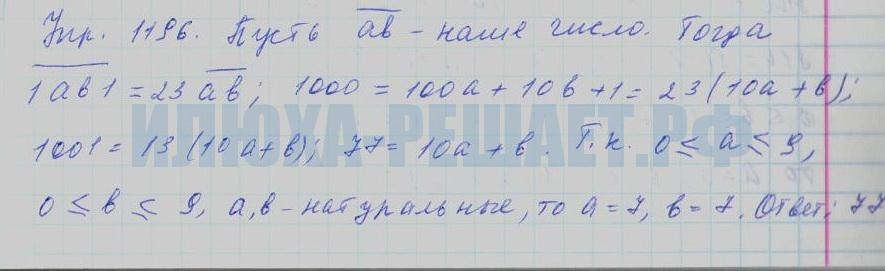 Упр. 1196. Пусть a̅b̅ - наше число. Тогда
1̅a̅b̅1̅ = 23 a̅b̅; 1000 = 100a + 10b + 1 = 23(10a + b);
1001 = 13(10a + b); 77 = 10a + b. Т.к. 0 ≤ a ≤ 9,
0 ≤ b ≤ 9, a, b - натуральные, то a = 7, b = 7. Ответ: 77
ИЛЮХА-РЕШАЕТ.РФ